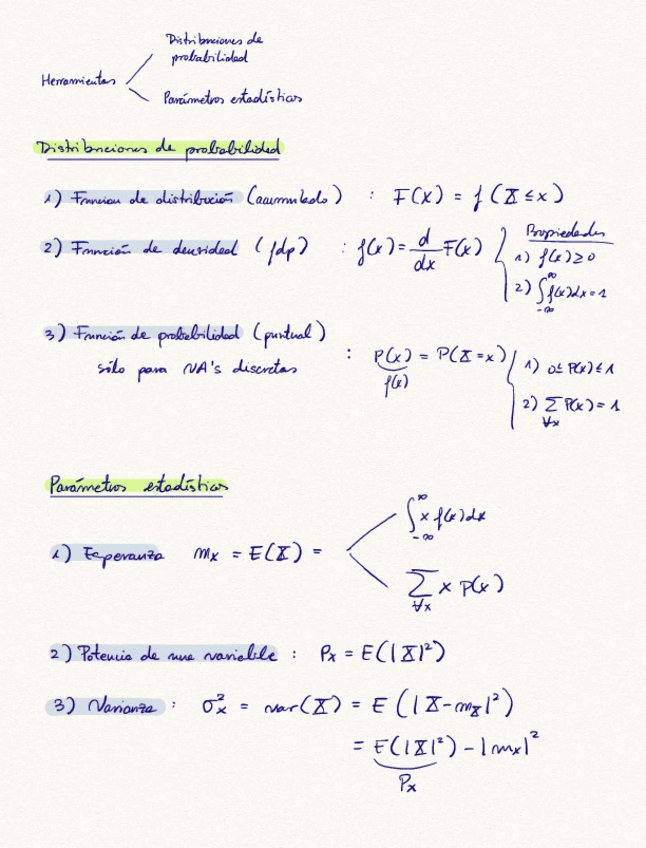 Distribuciones de
probabilidad
Herramientas
Parámetros estadísticos
Distribuciones de probabilidad
1) Función de distribución (acumulada) : F(x) = f(X ≤ x)
2) Función de densidad (fdp) : f(x) = d/dx F(x)
Propiedades
1) f(x) ≥ 0
2) ∫_{-∞}^{∞} f(x)dx = 1
3) Función de probabilidad (puntual)
sólo para VA's discretas
: P(x) = P(X=x)
f(x)
1) 0 ≤ P(x) ≤ 1
2) Σ_{∀x} P(x) = 1
Parámetros estadísticos
1) Esperanza m_x = E(X) =
∫_{-∞}^{∞} x f(x)dx
Σ_{∀x} x P(x)
2) Potencia de una variable : P_x = E(|X|²)
3) Varianza : σ_x² = var(X) = E(|X-m_X|²)
= E(|X|²) - |m_x|²
P_x